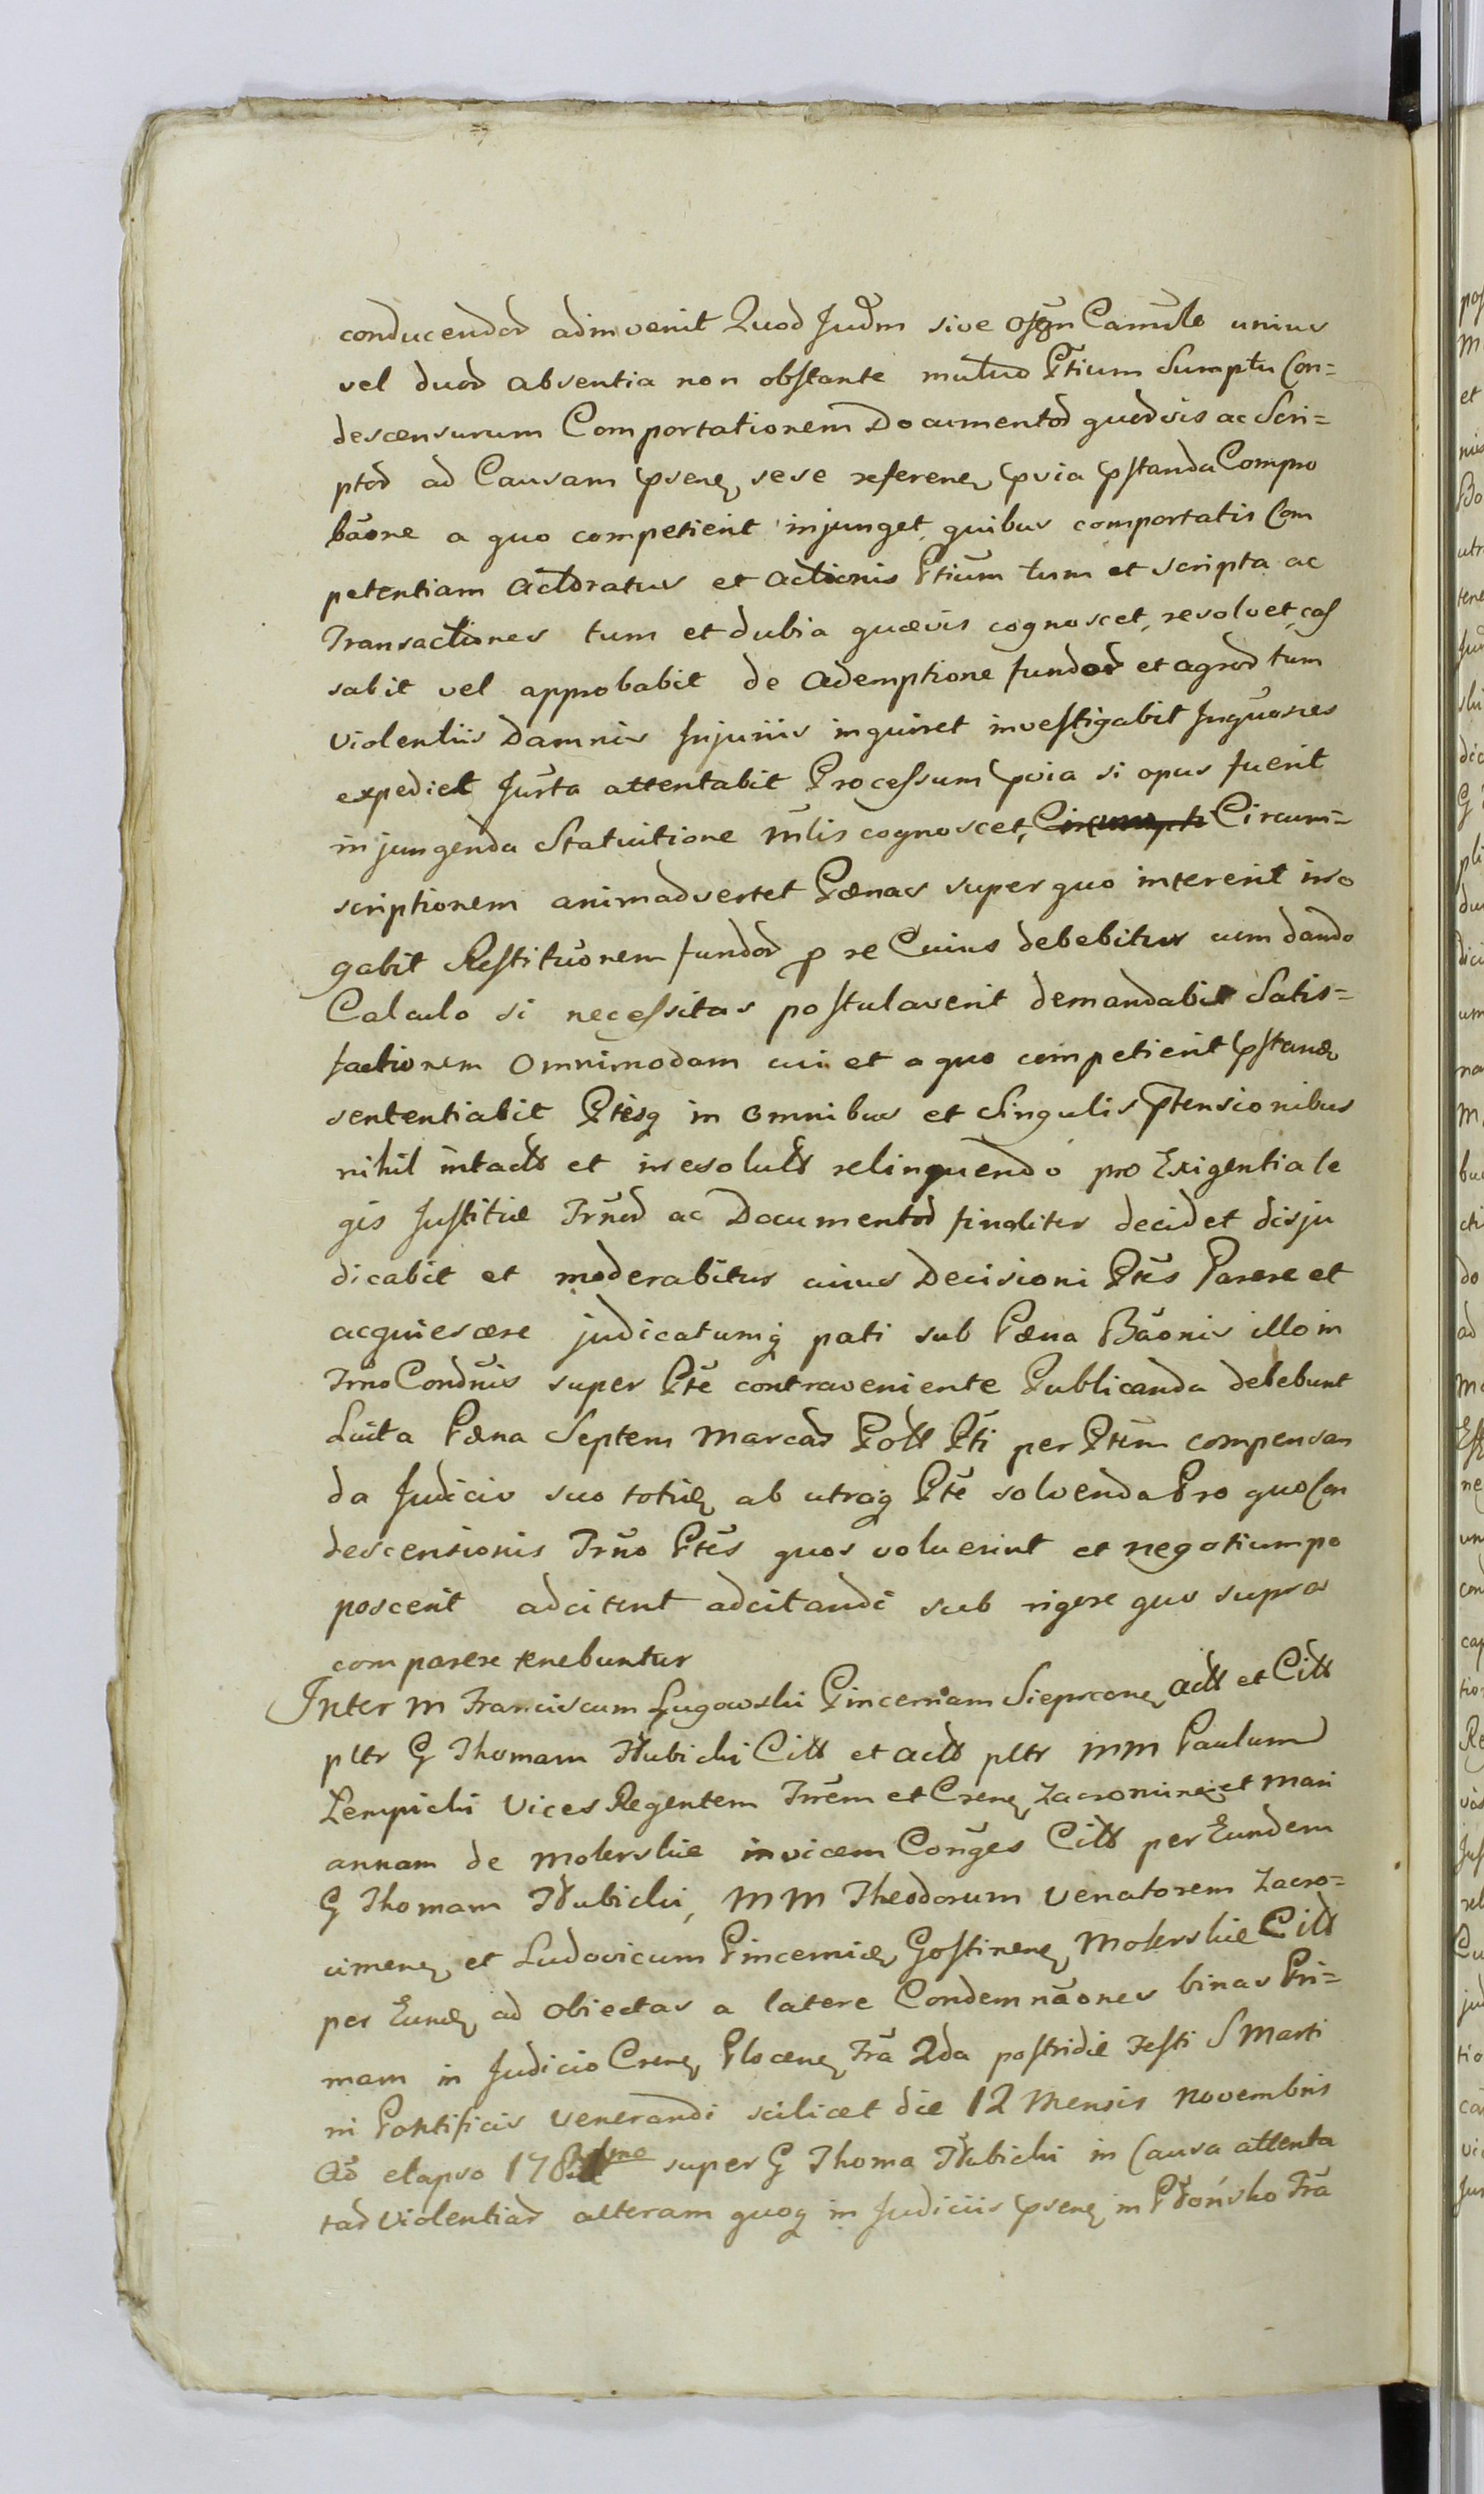 conducendor adinvenit Quod Judm sive Camrle unius
vel duor absentia non obstante mutuo Ptium Sumptu Con=
descensurum Comportationem Documentor quorvis ac Scri=
ptor ad Causam psene sese referene pvia pstanda Compro
baone a quo competierit injunget, quibus comportatis Com
petentiam Actoratus et Actionis Ptium tum et scripta ac
Transactiones tum et dubia quævis cognoscet, resolvet, cas
sabit vel approbabit de Ademptione fundor et agror tum
violentiis Damnis Injuriis inquiret investigabit Inquones
expediet Jurta attentabit Processum pvia si opus fuerit
injungenda Statuitione mlis cognoscet, Circum=
scriptionem animadvertet Pænas super quo intererit irro
gabit Restituonem fundor p re Cuius debebitur cum dando
Calculo si necessitas postulaverit demandabit Satis=
factionem Omnimodam cui et a quo competierit pstand
sententiabit Ptesq in omnibus et Singulis Ptensionibus
nihil intactt et irresolutt relinquendo pro Exigentia le
gis Justitiæ Jrnor ac Documentor finaliter decidet disju
dicabit et moderabitur cuius Decisioni Ptes Parere et
acquiescere judicatumq pati sub Pæna Baonis illo in
Trno Condnis super Pte contraveniente Publicanda debebunt
Luita Pæna Septem Marcar Poll Pti per Ptem compensan
da Judicio suo totiq ab utraq Pte solvenda Pro quo Con
descensionis Trno Ptes quos voluerint et negotium po
poscerit adcitent adcitandi sub rigore quo supra
comparere tenebuntur
Inter M Franciscum Lugowski Pincernam Sieprcene Actt et Citt
pltr G Thomam Dłubicki Citt et actt pltr MM Paulum
Lempicki Vices Regentem Trrem et Crene Zacrocimene et Mari
annam de Mokrskie invicem Conges Citt per Eundem
G Thomam Dłubicki, MM Theodorum Venatorem Zacro=
cimene et Ludovicum Pincernidæ Gostinene Mokrskie Citt
per Eund ad obiectas a latere Condemnaones binas Pri=
mam in Judicio Crene Plocene Fra 2da postridie Festi S Marti
ni Pontificis Venerandi scilicet die 12 Mensis Novembris
Ao elapso super G Thoma Dłubicki in Causa attenta
tar Violentiar alteram quoq in Judiciis psene in Płońsko Fra